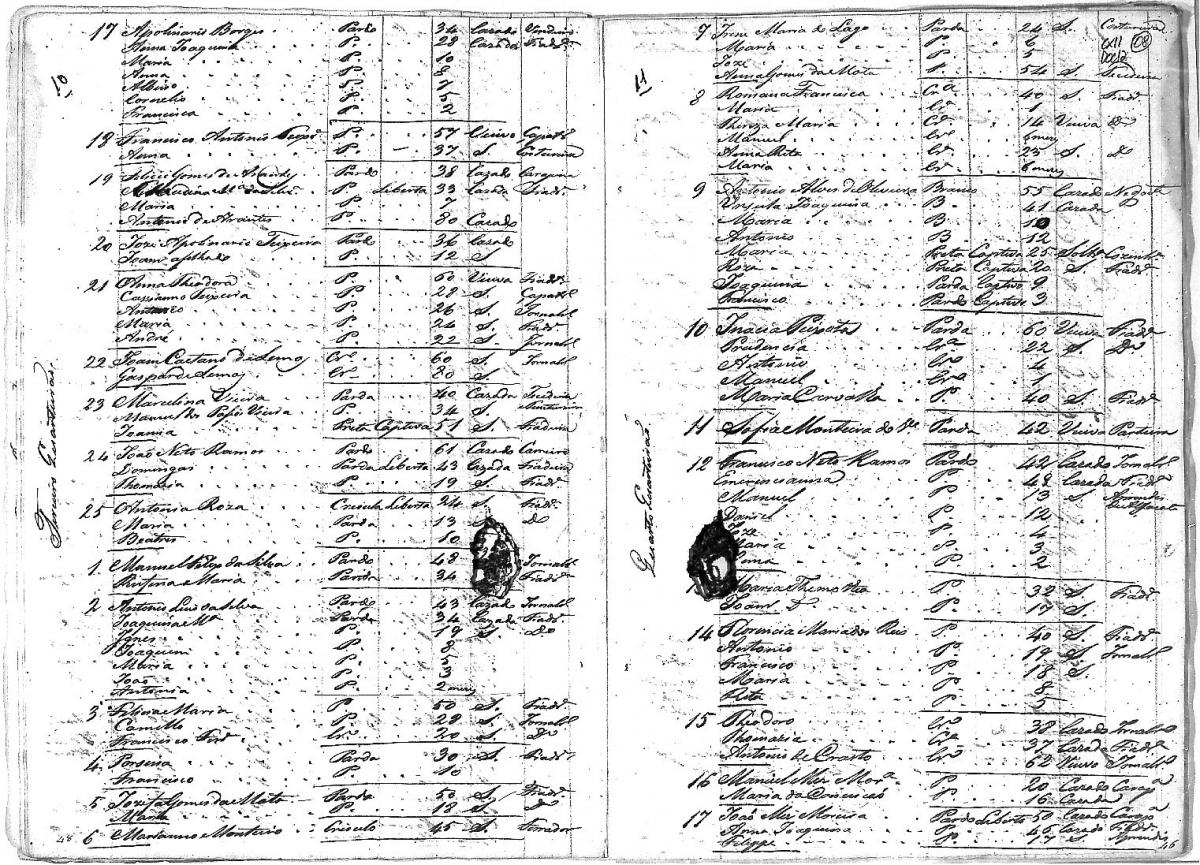 10
Terceiro Quarteirão.
17 Apolinario Borges Pardo 34 Cazado
Anna Joaquina P. 28 Cazada Fiadr.
Maria P. 10
Anna P. 8
Albino P. 7
Cornelio P. 5
Francisca P. 2
18 Francisco Antonio P. 57 Viuvo Capatr.
Anna P. 37 S. Costureira
19 Felix Gomes de Pardo 38 Cazado Carapina
P. Liberta 33 Cazada Fiadr.
Maria P. 7
Antonio de P. 80 Cazado
20 Jozé Apolinario Teixeira Pardo 36 Cazado
Joam P. 12 S
21 Anna Theodora P. 60 Viuva Fiadr.
Cassianno Teixeira P. 28 S. Capatr.
Antonio P. 26 S. Jornalr.
Maria P. 24 S. Fiadr.
André P. 22 S. Jornalr.
22 Joam Caetano de Lemos Cro. 60 S. Jornalr.
Gaspar de Lemos Cro. 80 S
23 Marcelina Vieira Parda 40 Cazada Tecedeira
Manuel dos Vieira P. 34 S.
Joanna Preta Captiva 51 S. Fiadeira
24 João Neto Ramos Pardo 61 Cazado Carreiro
Domingas Parda Liberta 43 Cazada Fiadeira
Thomazia P. 19 S. Fiadr.
25 Antonia Roza Creoula Liberta 24 S. Fiadr.
Maria Parda 13 S. Do
Beatris P. 10
1 Manuel Felip da Silva Pardo 48 Jornalr.
Rufina Maria Parda 34 Fiadr.
2 Antonio Luis da Silva Pardo 43 Cazado Jornalr.
Joaquina Ma. Parda 34 Cazada Fiadr.
Ignes P. 19 S. Do
Joaquim P. 8
Maria P. 5
João P. 3
Antonia P. 2 mezes
3 Felicia Maria P. 50 S. Fiadr.
Camillo P. 29 S. Jornalr.
Francisco Ferr. Cro. 20 S. Do
4 Porsena Parda 30 S. Fiadr.
Francisco P. 10
5 Jozefa Gomes da Mota Parda 50 S. Fiadr.
Maria P. 18 S. Do
6 Marianno Monteiro Crioulo 45 S. Ferrador
48
11
Quarto Quarteirão
08
7 Irene Maria do Lago Parda 24 S. Costureira
Maria P. 6
Jozé P. 5
Anna Gomes da Mota P. 54 S. Tecedeira
8 Romana Francisca Cra. 40 S. Fiadr.
Maria Cra. 1
Thereza Maria Ca. 14 Viuva Do
Manuel Cro. 6 mezes
Anna Rita Ca. 25 S. Do
Maria Cr. 6 mezes
9 Antonio Alves de Oliveira Branco 55 Cazado Negoce.
Ursula Joaquina B. 41 Cazada
Maria B. 10
Antonio B 12
Maria Preta Captiva 25 Solta. Cozinha.
Roza Preta Captiva 20 S. Fiadr.
Joaquina Parda Captiva 9
Francisco Pardo Captivo 3
10 Inacia Peixota Parda 60 Viuva Fiadr.
Prudencia Cra. 22 S. Do
Antonio Cro. 4
Manuel Cro. 1
Maria Carvalha P. 40 S. Fiadr.
11 Sofia Monteira do Parda 42 Viuva Parteira
12 Francisco Neto Ramos Pardo 42 Cazado Jornalr.
Emerenciana P 48 Cazada Fiadr.
Manuel P 13 S Aprendis de Alfaiate
Daniel P 12
Jozé P 4
Maria P 3
P 2
Maria P. 32 S. Fiadr.
Joam P. 17 S.
14 Florencia Maria dos Reis P 40 S. Fiadr.
Antonio P. 19 S. Jornalr.
Francisco P. 18 S.
Maria P 8
Rita P. 5
15 Theodoro Cro. 38 Cazado Jornalr.
Thomazia Cra. 37 Cazada Fiadr.
Antonio de Crasto Cro. 62 Viuvo Jornalr.
16 Manuel Mora. P. 20 Cazado
Maria da Conceicao P. 16 Cazada
17 João Moreira Pardo Liberto 50 Cazado
Anna Joaquina P. 46 Cazada Fiadr.
Filippe P. 17 S. Aprendis
46